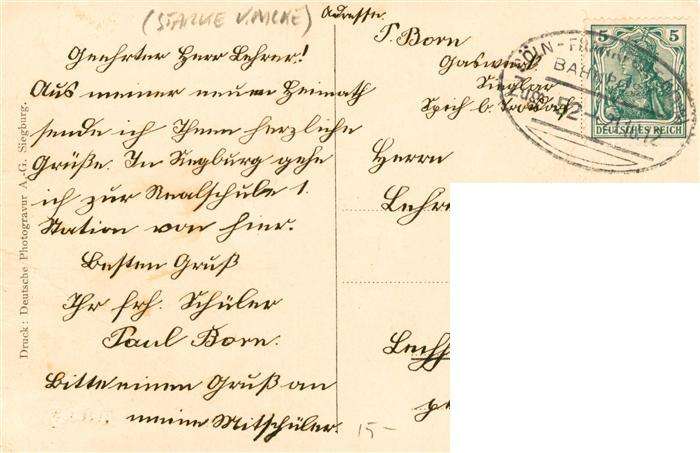 (STARKE V.MCKE)
Geehrter Herr Lehrer!
Aus meiner neuen Heimath
sende ich Ihnen herzliche
Grüße. In Siegburg gehe
ich zur Realschule 1.
Station von hier.
Besten Gruß
Ihr frh. Schüler
Paul Born.
Bitte einen Gruß an
meine Mitschüler.
Druck: Deutsche Photogravur A.-G. Siegburg.
15-
Adresse.
P. Born
Gaswerk
Sieglar
Spich b. Troisdorf
Herrn
Lehre
Lechf
5 5
DEUTSCHES REICH
CÖLN-FRANKF
BAHNPOST
ZUG